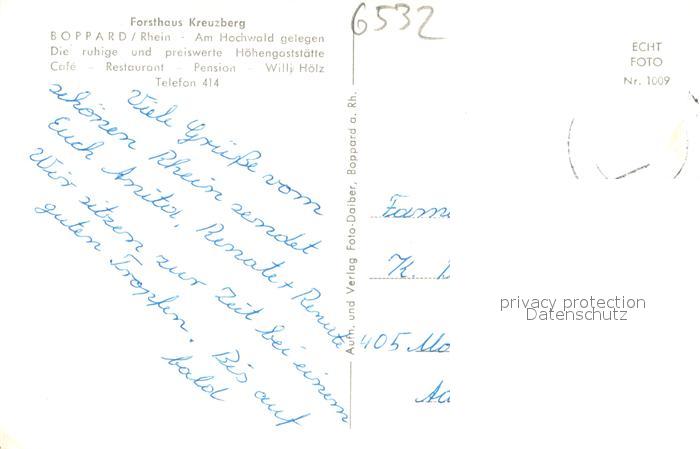 Forsthaus Kreuzberg
BOPPARD/Rhein - Am Hochwald gelegen
Die ruhige und preiswerte Höhengaststätte
Café - Restaurant - Pension - Willi Hölz
Telefon 414
6532
ECHT
FOTO
Nr. 1009
Viele Grüße vom
schönen Rhein sendet
Euch Anita, Renate + Renate
Wir sitzen zur Zeit bei einem
guten Tropfen. Bis auf
bald
Aufn. und Verlag Foto-Daiber, Boppard a. Rh.
Fam
K.
405 Mö
privacy protection
Datenschutz